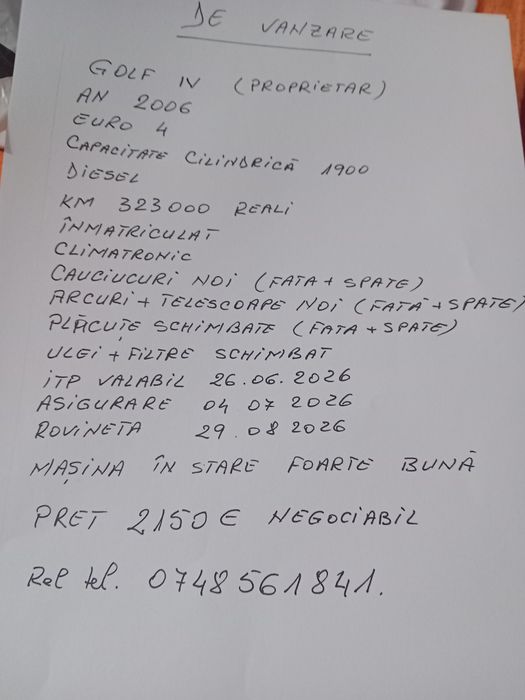 DE VANZARE
GOLF IV (PROPRIETAR)
AN 2006
EURO 4
CAPACITATE CILINDRICĂ 1900
DIESEL
KM 323000 REALI
ÎNMATRICULAT
CLIMATRONIC
CAUCIUCURI NOI (FATA + SPATE)
ARCURI + TELESCOAPE NOI (FATĂ + SPATE)
PLĂCUȚE SCHIMBATE (FATA + SPATE)
ULEI + FILTRE SCHIMBAT
ITP VALABIL 26.06.2026
ASIGURARE 04 07 2026
ROVINETA 29.08 2026
MAȘINA ÎN STARE FOARTE BUNĂ
PRET 2150 € NEGOCIABIL
Rel tel. 0748561841.